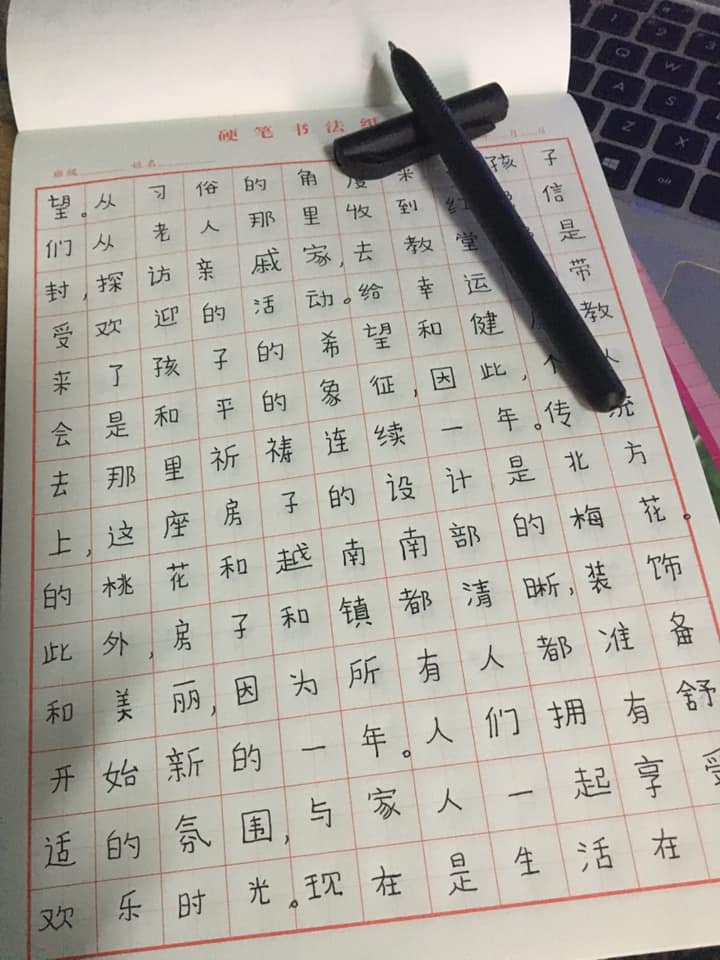 硬笔书法纸
班级 姓名 年 月 日
望。从习俗的角度来 孩子
们从老人那里收到红 信
封,探访亲戚家,去教堂 是
受欢迎的活动。给幸运 带
来了孩子的希望和健 教
会是和平的象征,因此, 人
去那里祈祷连续一年。传统
上,这座房子的设计是北方
的桃花和越南南部的梅花。
此外,房子和镇都清晰,装饰
和美丽,因为所有人都准备
开始新的一年。人们拥有舒
适的氛围,与家人一起享受
欢乐时光。现在是生活在
Q W A Z X alt